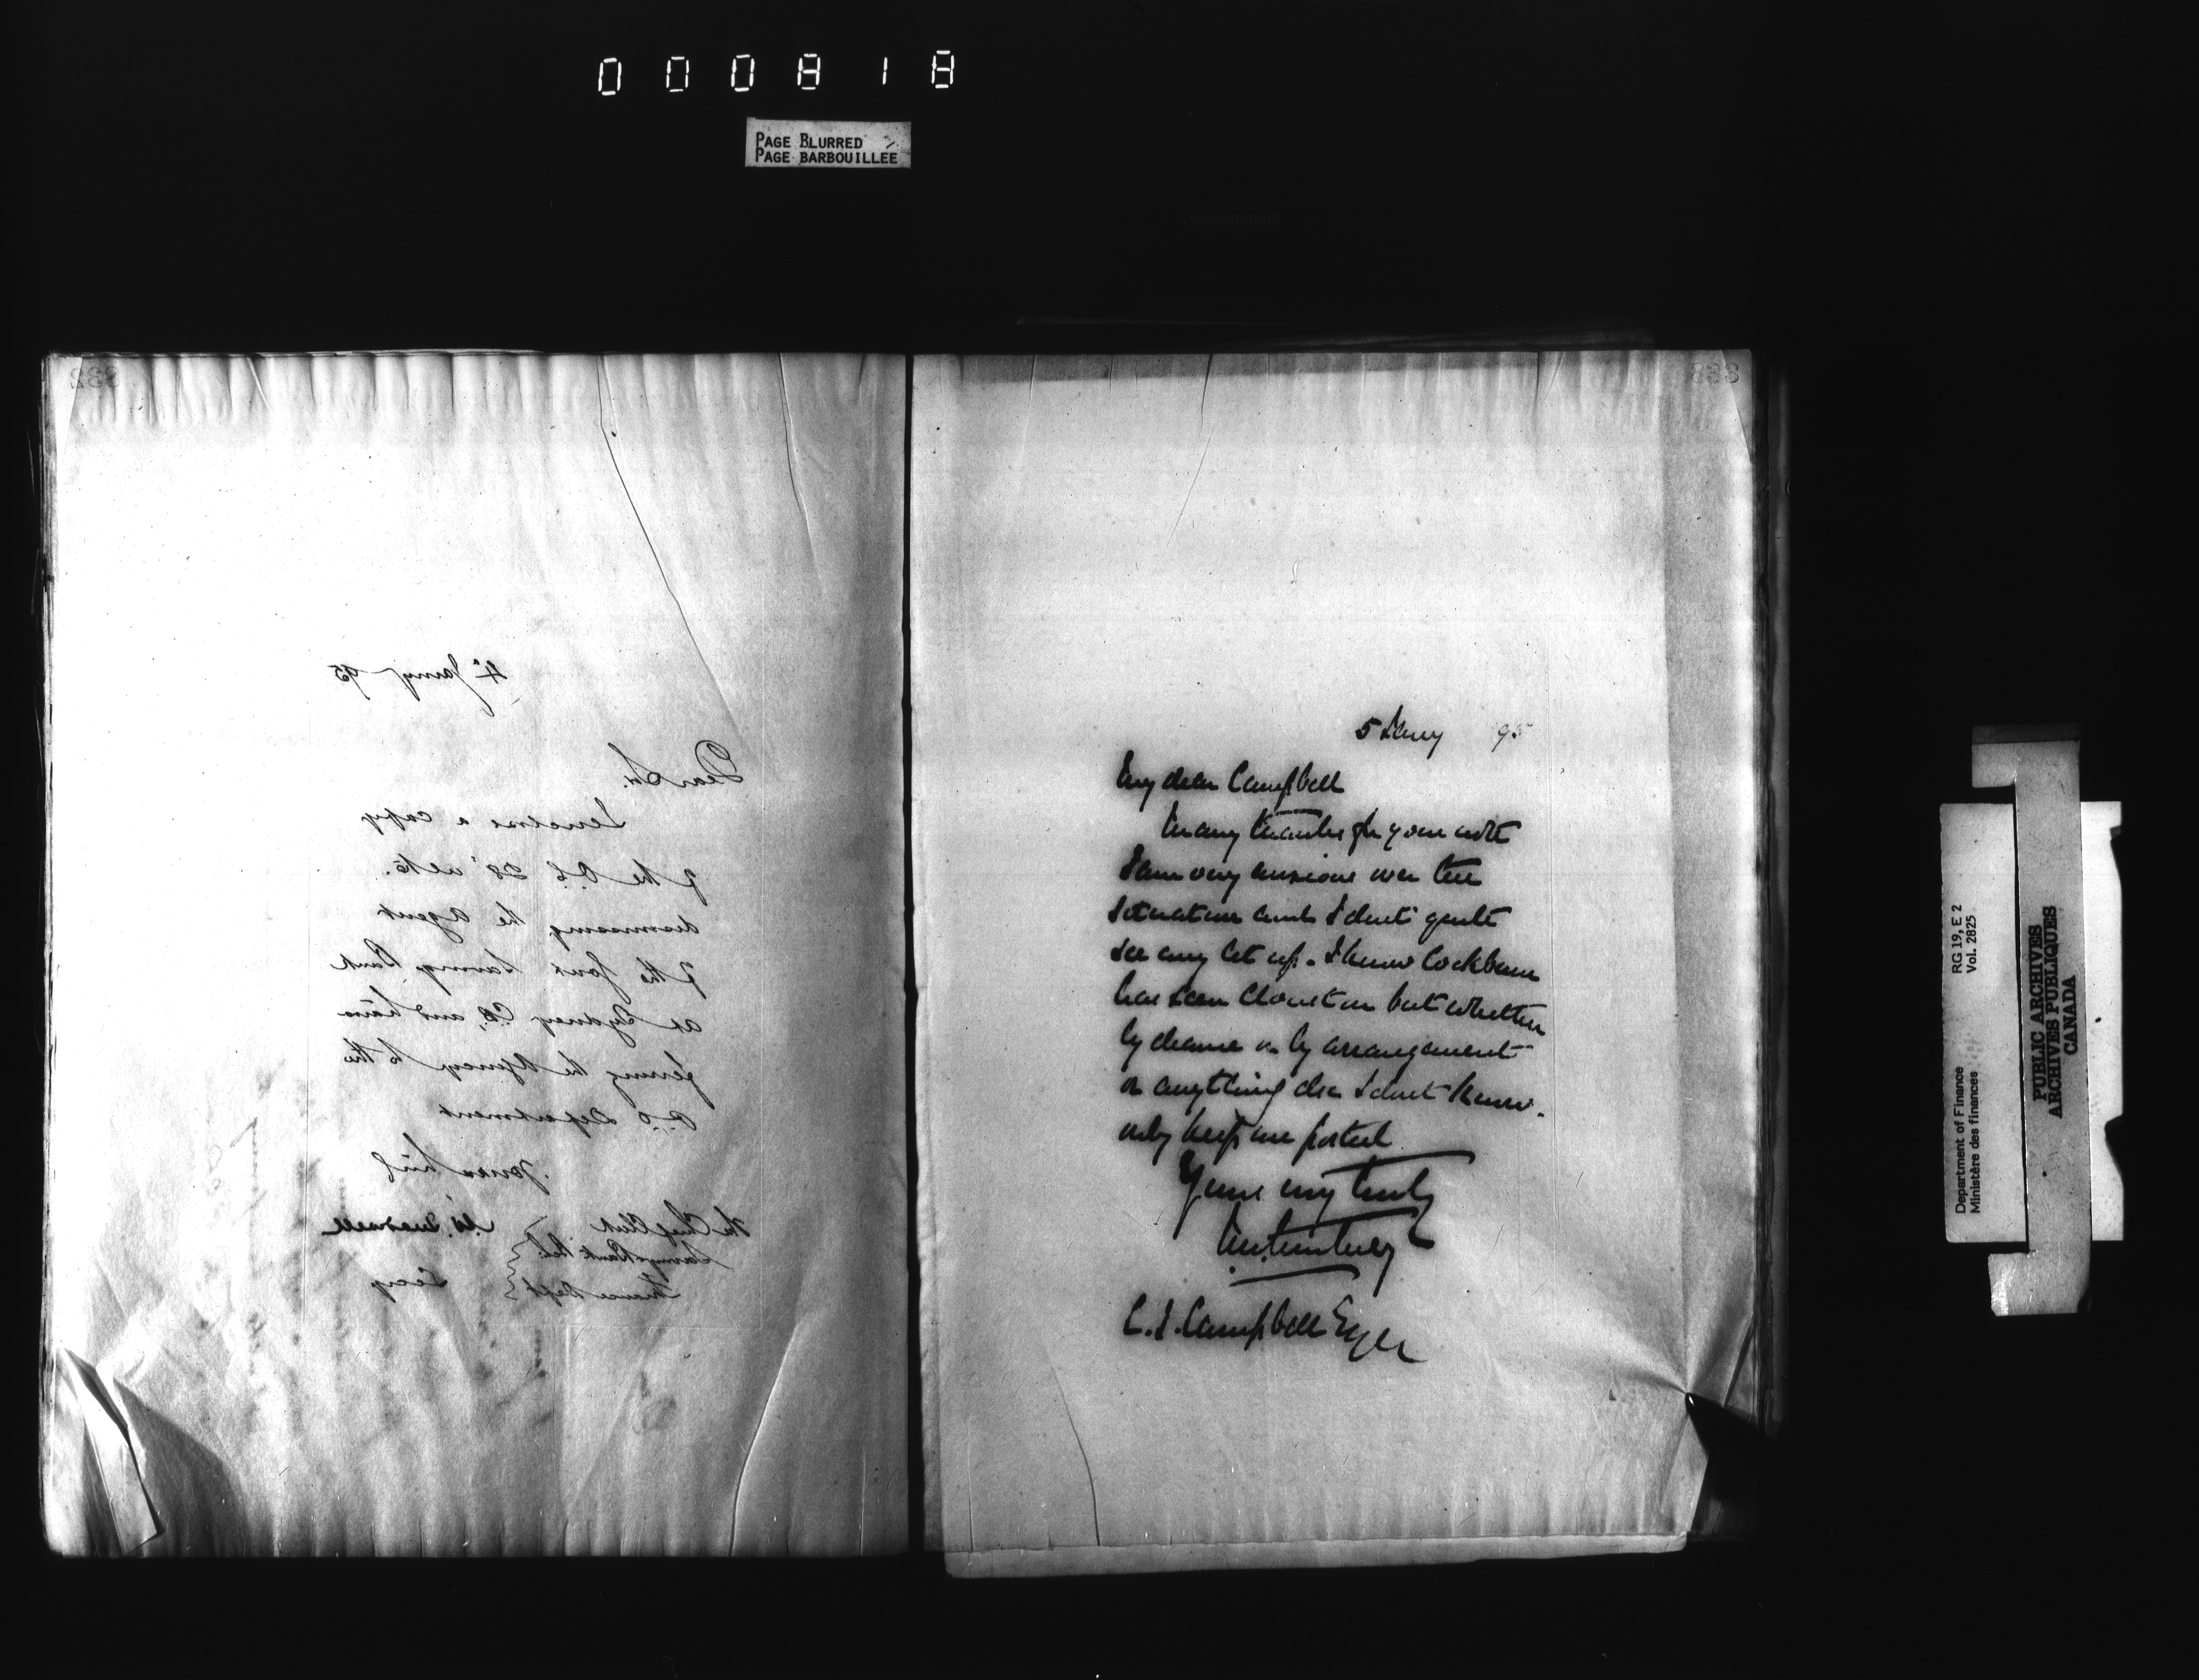 000818
PAGE BLURRED
PAGE BARBOUILLEE
332
4 Jany 95
Dear Sir.
I enclose a copy
of the O.C. 28 ulto.
dismissing the agent
of the Govt Savings Bank
at Sydney C.B. and trans
ferring the Agency to the
P.O. Department
Yours truly
The Chief Clerk
Savings Bank
Finance Dept
Secy
333
5 Jany 95
My dear Campbell
Many thanks for your note
I am very anxious over the
situation and I dont quite
see any let up. I know Cockburn
has seen Clouston but whether
by chance or by arrangement
or anything else I dont know.
only keep me posted
Yours very truly
C. S. Campbell Esqre
Department of Finance
Ministère des finances
RG 19, E 2
Vol. 2825
PUBLIC ARCHIVES
ARCHIVES PUBLIQUES
CANADA